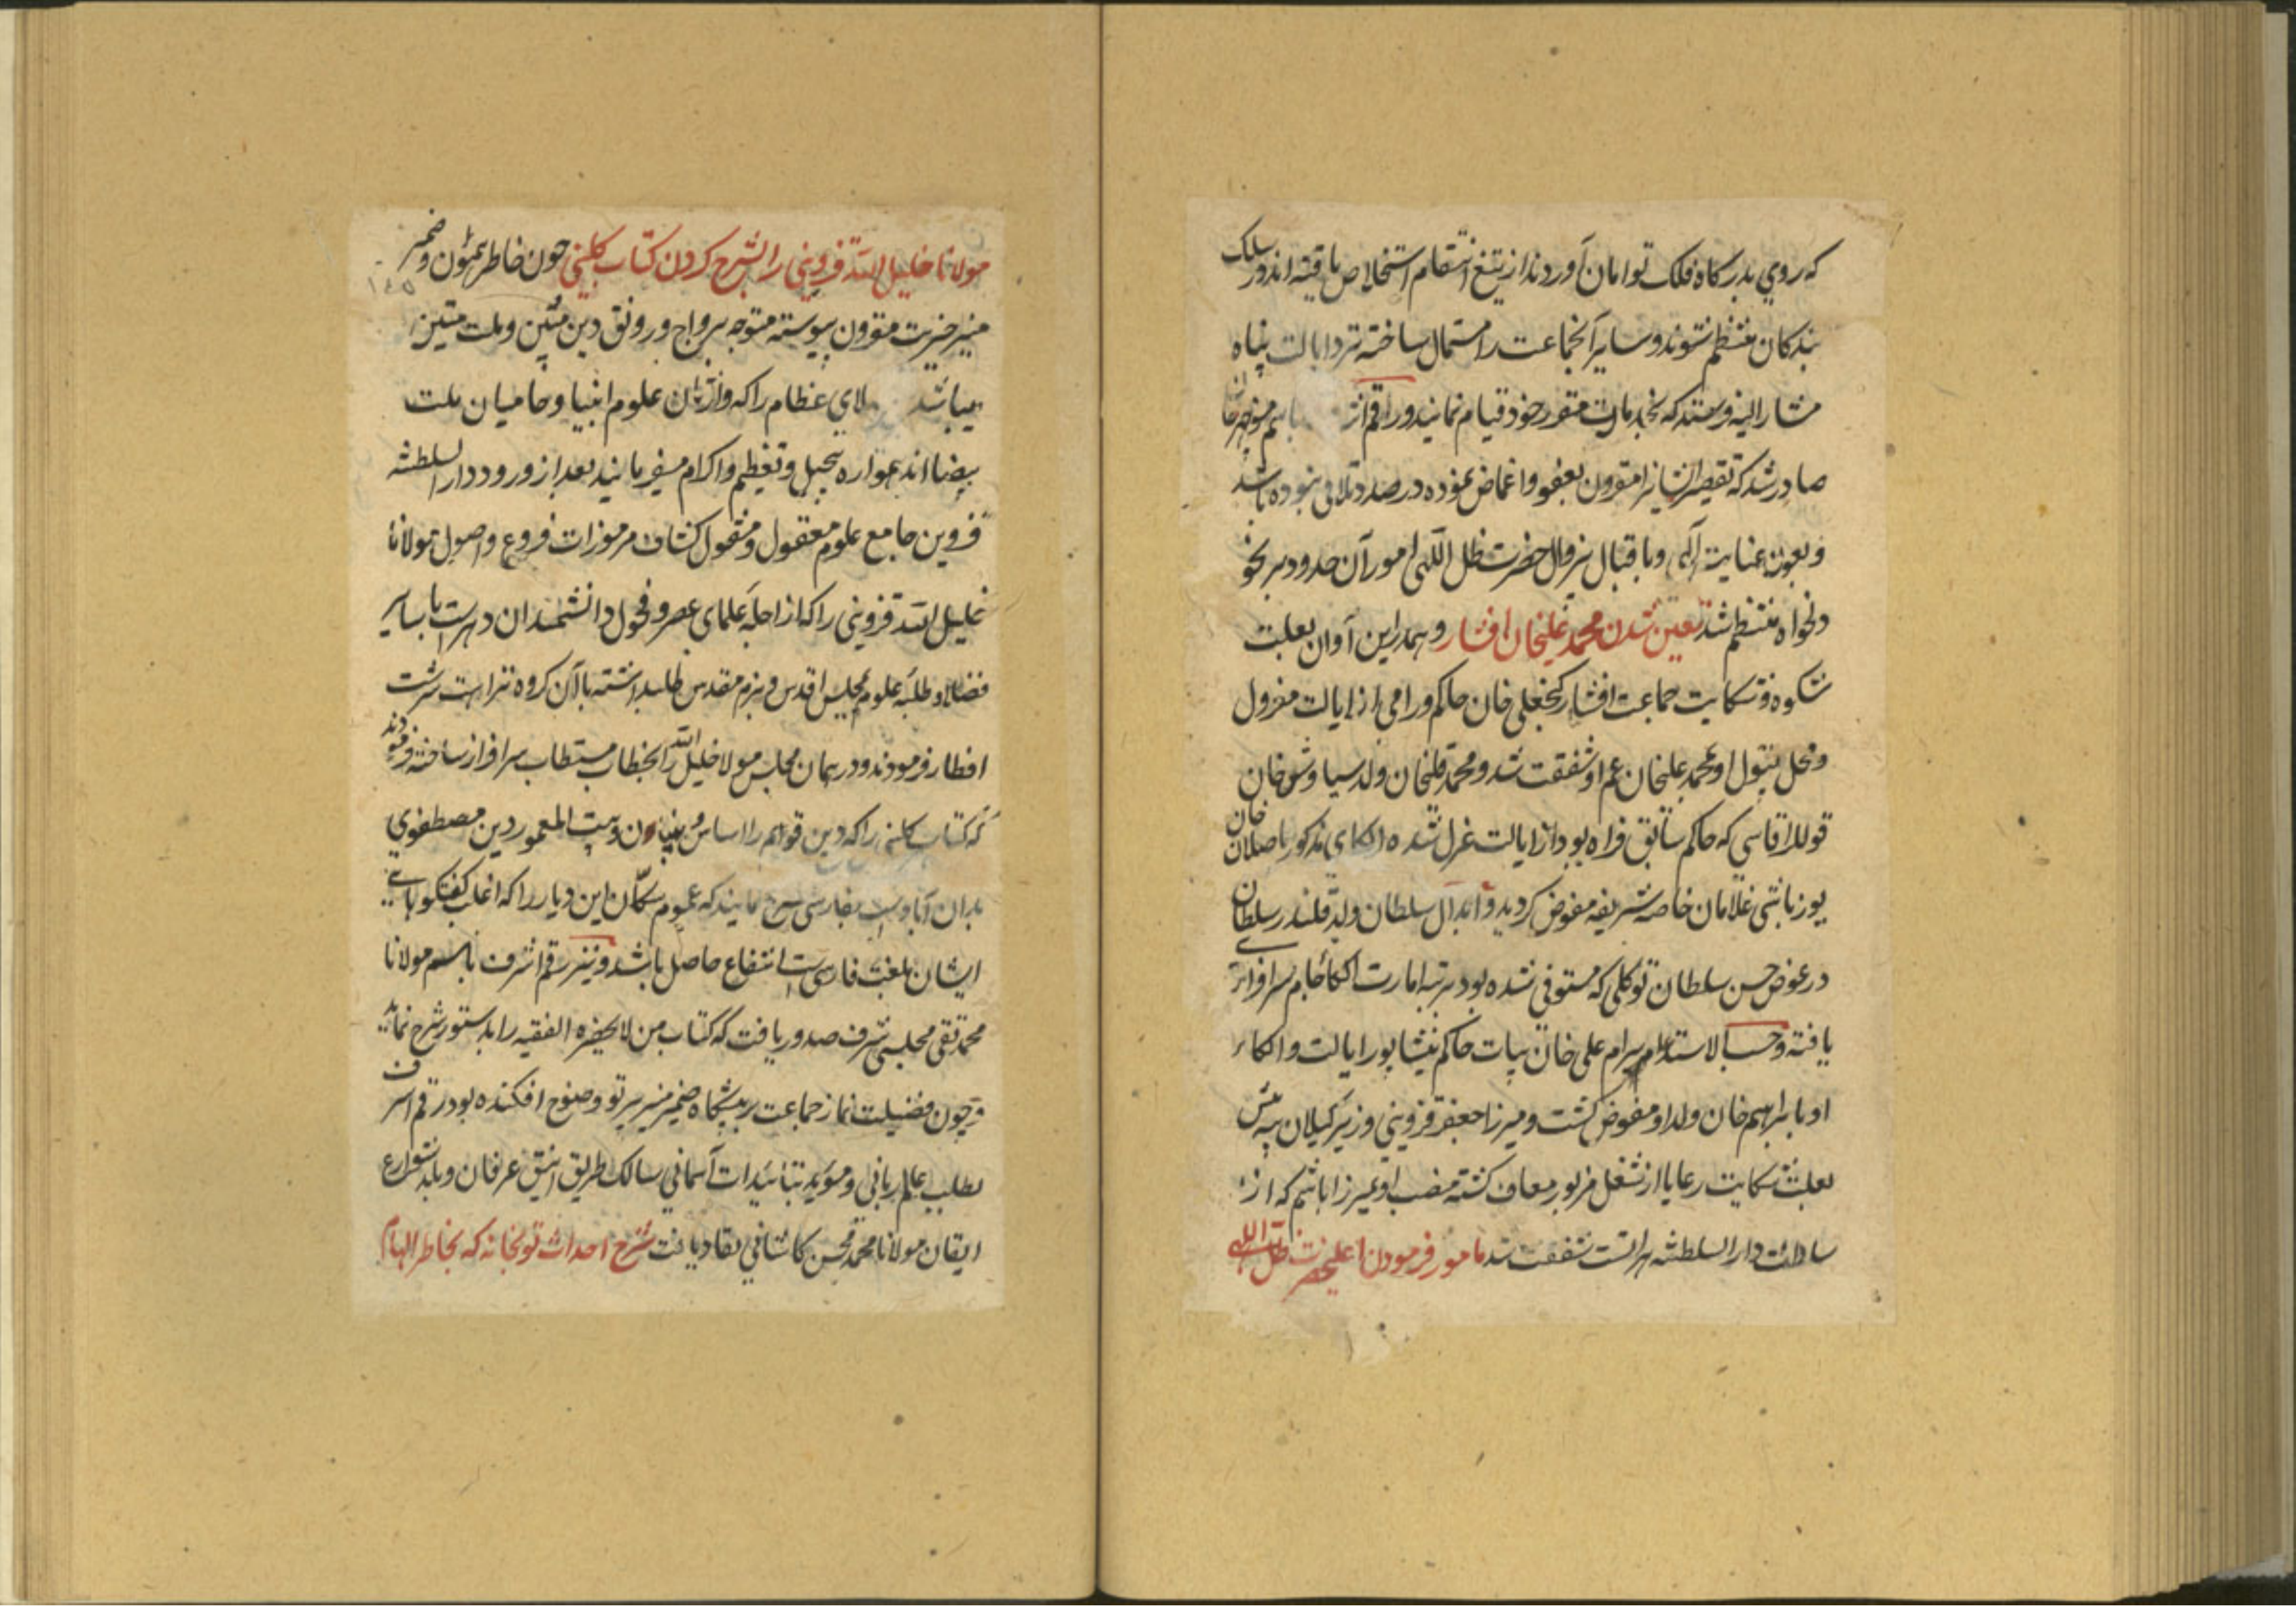 که روی بدرگاه فلک توامان آوردند از تیغ انتقام استخلاص یافته اندر سلک
بندگان منتظم شوند و سایر آنجماعت را استمال ساخته نزد ایالت پناه
مشار الیه فرستد که بخدمات مقرر خود قیام نمایند و رقم باسم منوچهرخان
صادر شد که تقصیر ایشانرا مقرون بعفو و اغماض نموده در صدد تلافی نبوده باشد
و بعون عنایت الهی و باقبال بیزوال حضرت ظل اللهی امور آن حدود بر نحو
دلخواه منتظم شد تعین شدن محمد علیخان افشار و همدرین آوان بعلت
شکوه و شکایت جماعت افشار کنجعلی خان حاکم ورامی از ایالت معزول
و محل تیول او بمحمد علیخان عم او شفقت شد و محمد قلیخان ولد سیاوش خان
قوللر اقاسی که حاکم سابق فراه بود از ایالت عزل شده الکای مذکور باصلان خان
یوزباشی غلامان خاصه شریفه مفوض گردید و ابدال سلطان ولد قلندر سلطان
در عوض حسن سلطان توکلی که مستوفی شده بود برتبه امارت الکا جام سرافرازی
یافته و حسب الاستدعام بیرام علی خان بیات حاکم نیشاپور ایالت و الکاء
او بابراهیم خان ولد او مفوض گشت و میرزا جعفر قزوینی وزیر گیلان بیه پس
بعلت شکایت رعایا از شغل مزبور معاف گشته منصب او بمیرزا هاشم که از
سادات دار السلطنه هراتست شفقت شد مامور فرمودن اعلیحضرت ظل اللهی
مولانا خلیل الله قزوینی را بشرح کردن کتاب کلینی چون خاطر همیون و ضمیر
منیر خیریت مقرون پیوسته متوجه برواج و رونق دین مبین و ملت متین
میباشد علمای عظام را که وارثان علوم انبیا و حامیان ملت
بیضا اند همواره تبجیل و تعظیم و اکرام میفرمایند بعد از ورود دار السلطنه
قزوین جامع علوم معقول و منقول کشاف مرموزات فروع و اصول مولانا
خلیل الله قزوینی را که از اجله علمای عصر و فحول دانشمندان دهرست با سایر
فضلا و طلبه علوم بمجلس اقدس و بزم مقدس طلبداشته با آن گروه نزاهت سرشت
افطار فرمودند و در همان مجلس مولا خلیل الله را بخطاب مستطاب سرافراز ساخته فرمودند
که کتاب کلینی را که دین قوایم را اساس و بنیان و بیت المعمور دین مصطفوی
بدان آبادست بفارسی شرح نمایند که عموم سکان این دیار را که اغلب گفتگوی
ایشان بلغت فارسی است انتفاع حاصل باشد و نیز رقم اشرف باسم مولانا
محمد تقی مجلسی شرف صدور یافت که کتاب من لا یحضره الفقیه را بدستور شرح نماید
و چون فضیلت نماز جماعت بر پیشگاه ضمیر منیر پرتو وضوح افکنده بود رقم اشرف
بطلب عالم ربانی و موید بتائیدات آسمانی سالک طریق انیق عرفان و بلد شوارع
ایقان مولانا محمد محسن کاشانی نفاد یافت شرح احداث توپخانه که بخاطر الهام
۱۴۵